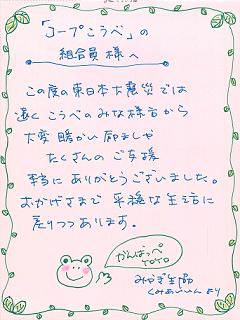 「コープこうべ」の
組合員様へ
この度の東日本大震災では
遠く こうべの みな様方から
大変 暖かい 励ましや
たくさんの ご支援
本当に ありがとうございました。
おかげさまで 平穏な 生活に
戻りつつあります。
がんばっぺ
みやぎ生協
くみあいいん より